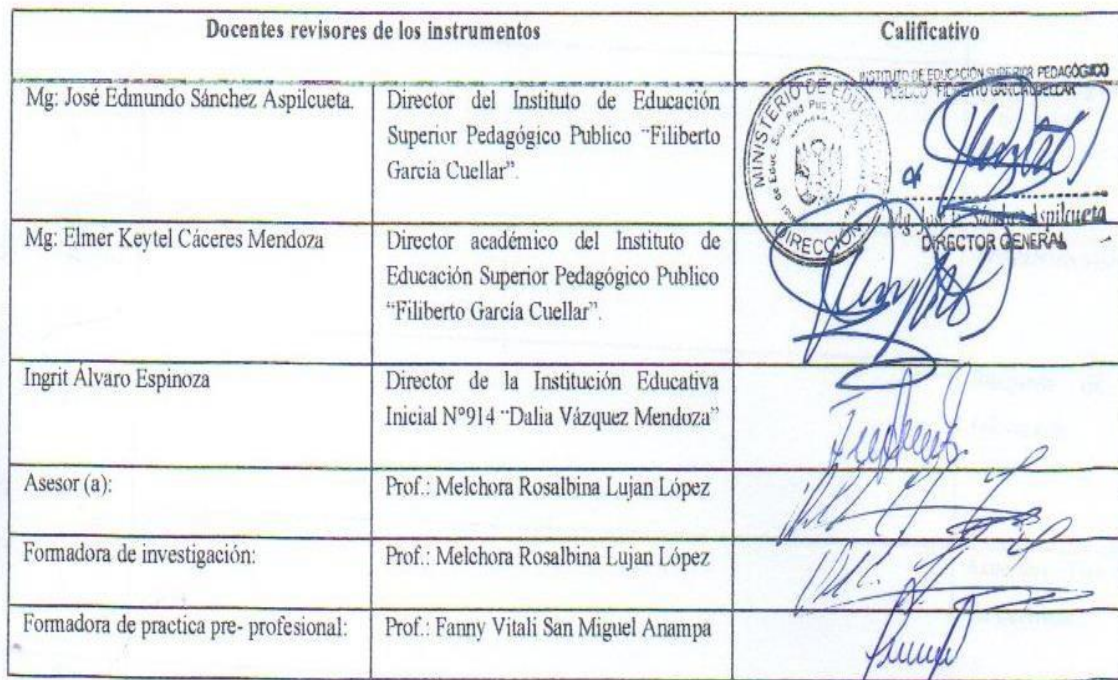 Docentes revisores de los instrumentos
Calificativo
Mg: José Edmundo Sánchez Aspilcueta.
Director del Instituto de Educación
Superior Pedagógico Publico “Filiberto
García Cuellar”.
INSTITUTO DE EDUCACIÓN SUPERIOR PEDAGÓGICO
PÚBLICO "FILIBERTO GARCIA CUELLAR"
MINISTERIO DE EDUCACIÓN
DIRECCIÓN
Mg. José E. Sánchez Aspilcueta
DIRECTOR GENERAL
Mg: Elmer Keytel Cáceres Mendoza
Director académico del Instituto de
Educación Superior Pedagógico Publico
“Filiberto García Cuellar”.
Ingrit Álvaro Espinoza
Director de la Institución Educativa
Inicial Nº914 “Dalia Vázquez Mendoza”
Asesor (a):
Prof.: Melchora Rosalbina Lujan López
Formadora de investigación:
Prof.: Melchora Rosalbina Lujan López
Formadora de practica pre- profesional:
Prof.: Fanny Vitali San Miguel Anampa